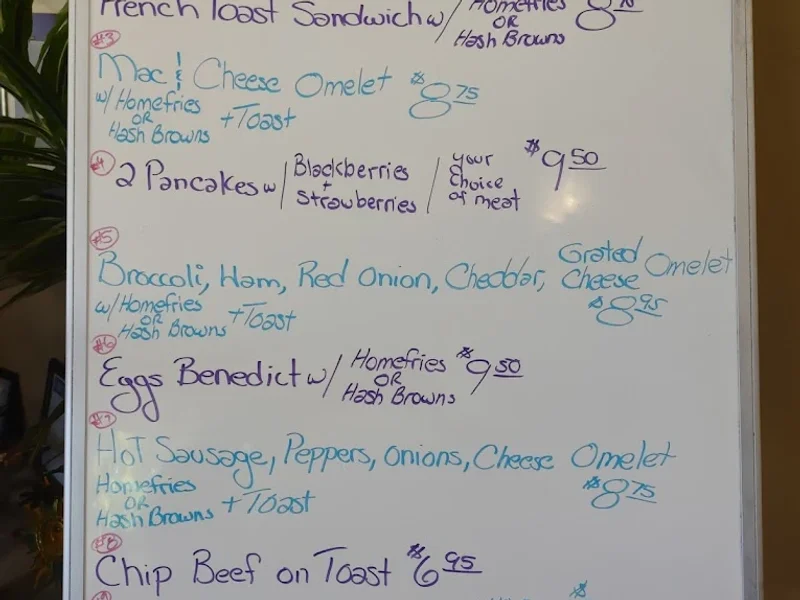 French Toast Sandwich w/ Homefries OR Hash Browns
#3
Mac & Cheese Omelet $8 75
w/ Homefries OR Hash Browns + Toast
#4
2 Pancakes w/ Blackberries + Strawberries / your choice of meat $9 50
#5
Broccoli, Ham, Red onion, Cheddar, Grated Cheese Omelet
w/ Homefries OR Hash Browns + Toast $8 95
#6
Eggs Benedict w/ Homefries OR Hash Browns $9 50
#7
Hot Sausage, Peppers, onions, Cheese Omelet
Homefries OR Hash Browns + Toast $8 75
#8
Chip Beef on Toast $6 95